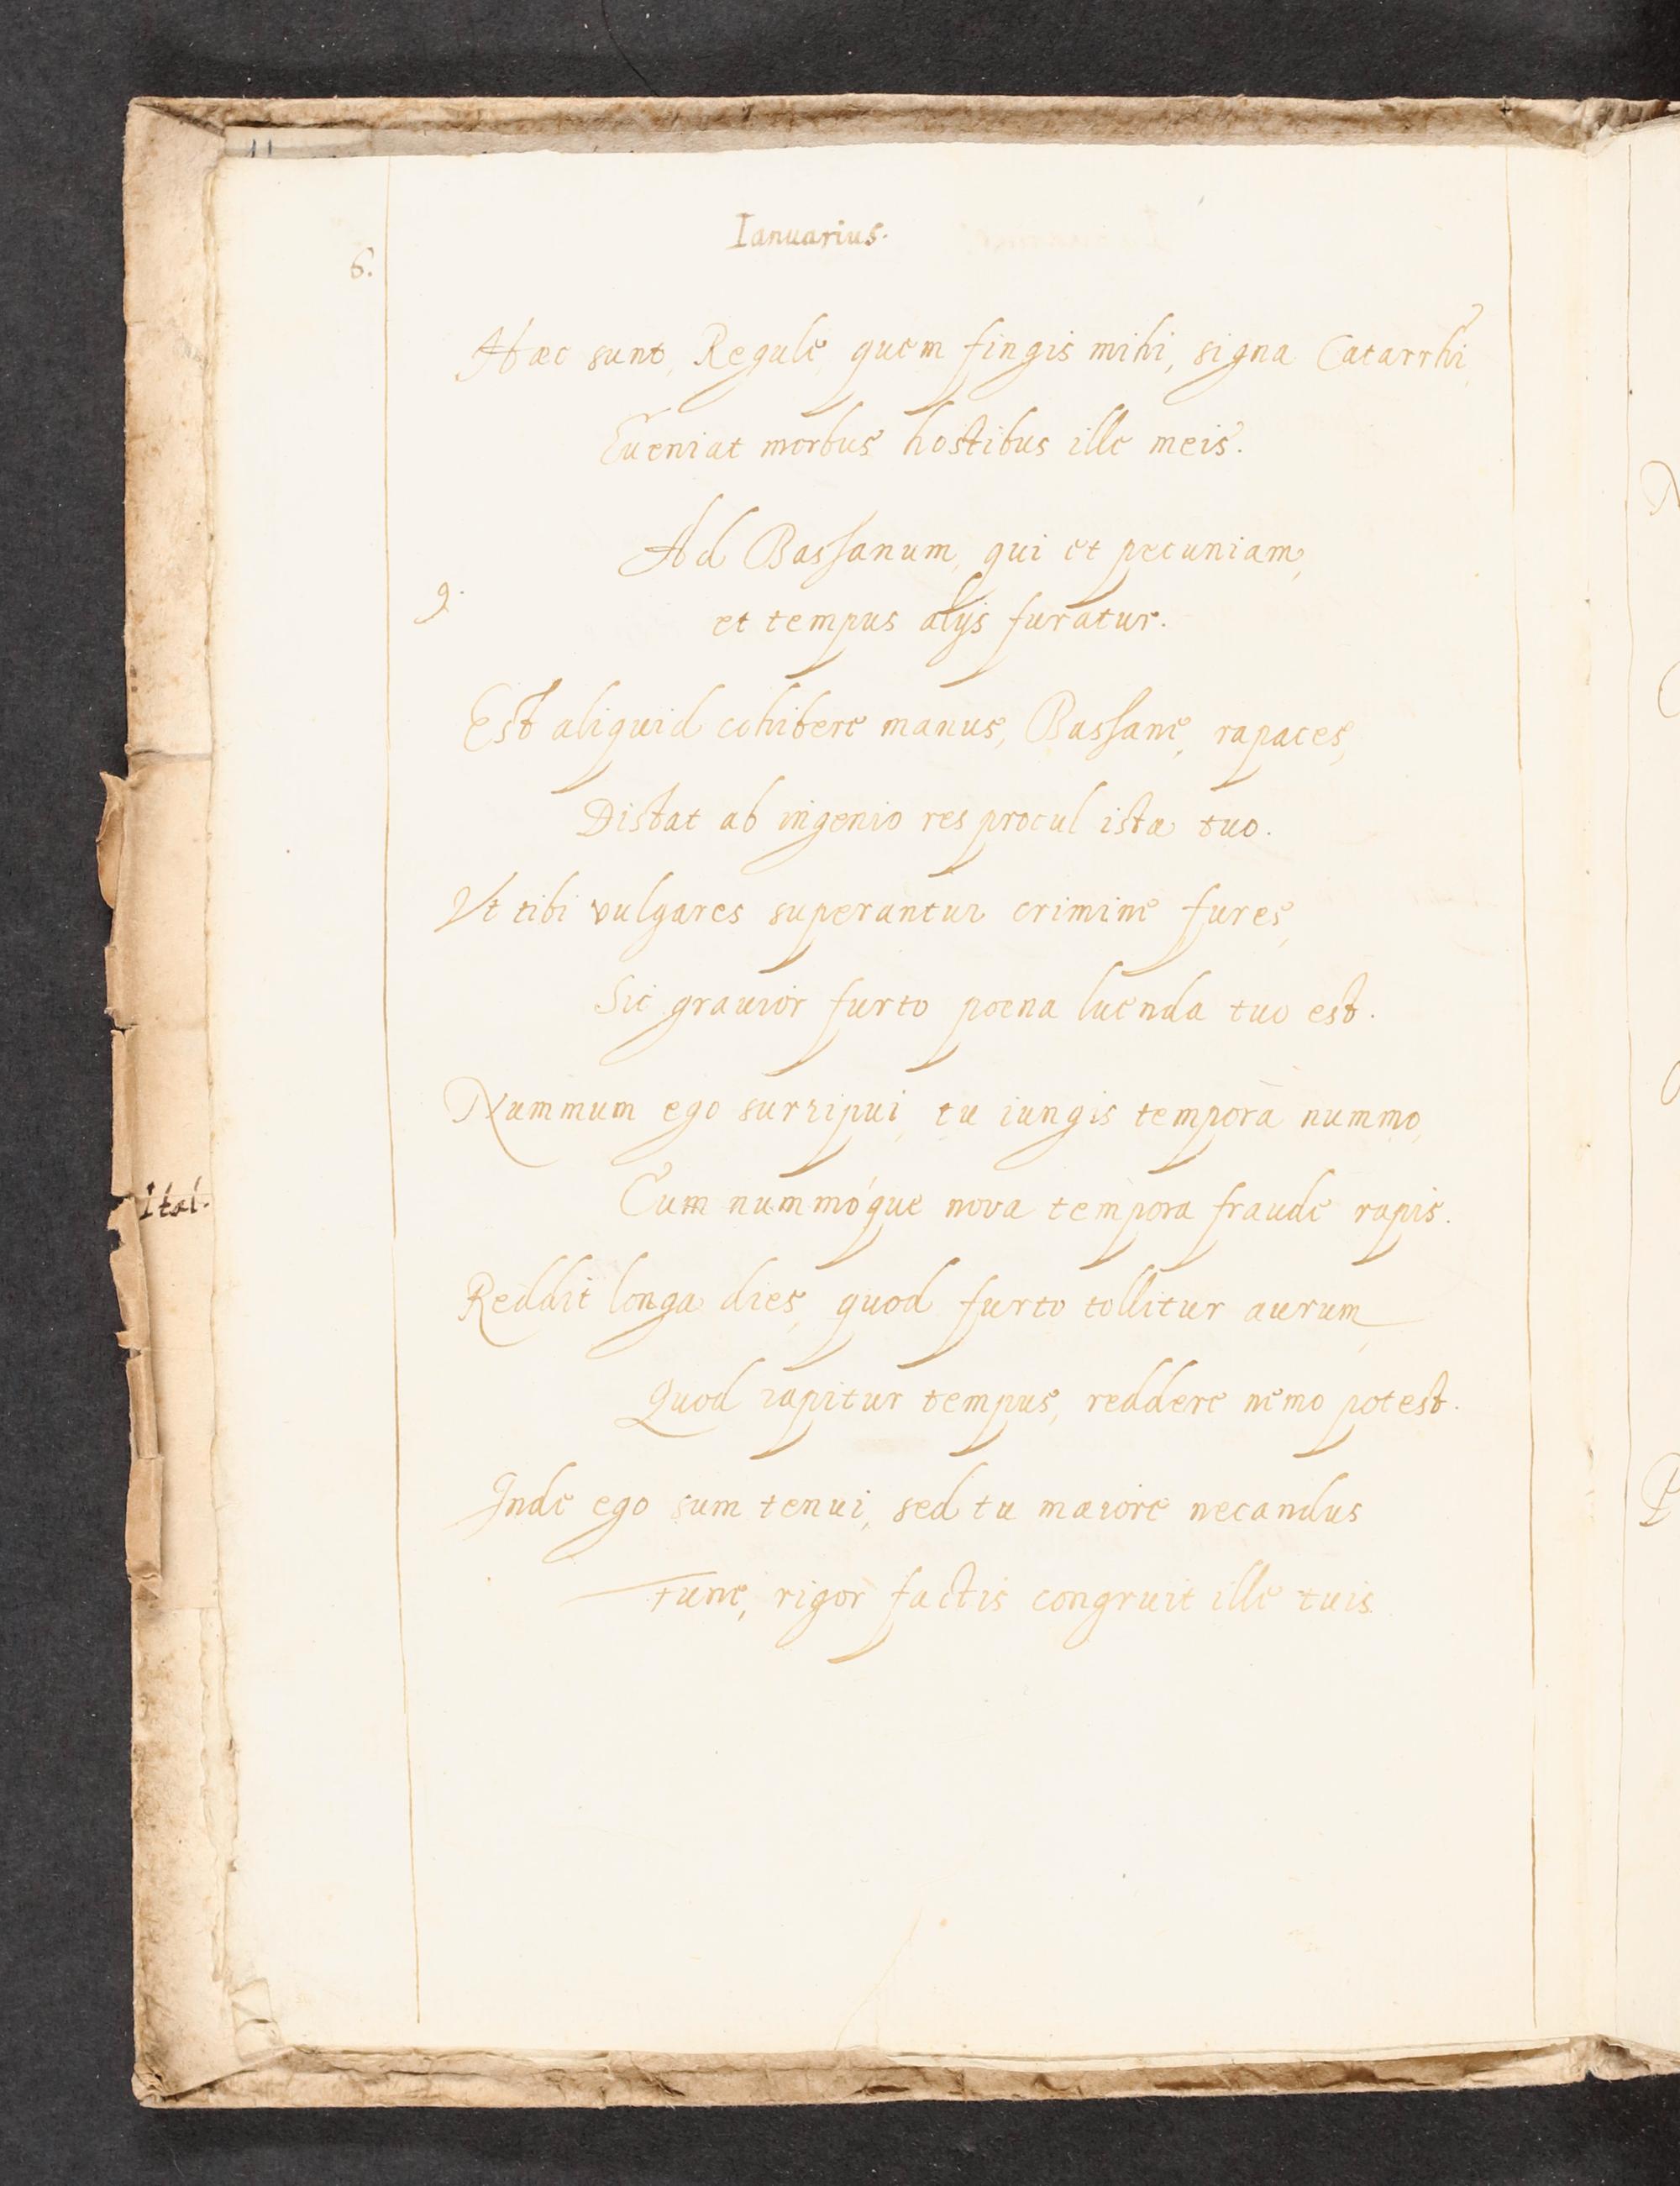 Ianuarius.
6.
Hæc sunt, Regule, quem fingis mihi, signa Catarrhi,
Eueniat morbus hostibus ille meis.
Ad Bassanum, qui et pecuniam,
9.
et tempus alijs furatur.
Est aliquid cohibere manus, Bassane, rapaces,
Distat ab ingenio res procul ista tuo.
Vt tibi vulgares superantur crimine fures,
Sic grauior furto poena luenda tuo est.
Nummum ego surripui, tu iungis tempora nummo,
Cum nummóque nova tempora fraude rapis.
Ital.
Reddit longa dies, quod furto tollitur aurum,
Quod rapitur tempus, reddere nemo potest.
Inde ego sum tenui, sed tu maiore necandus
Fune, rigor factis congruit ille tuis.